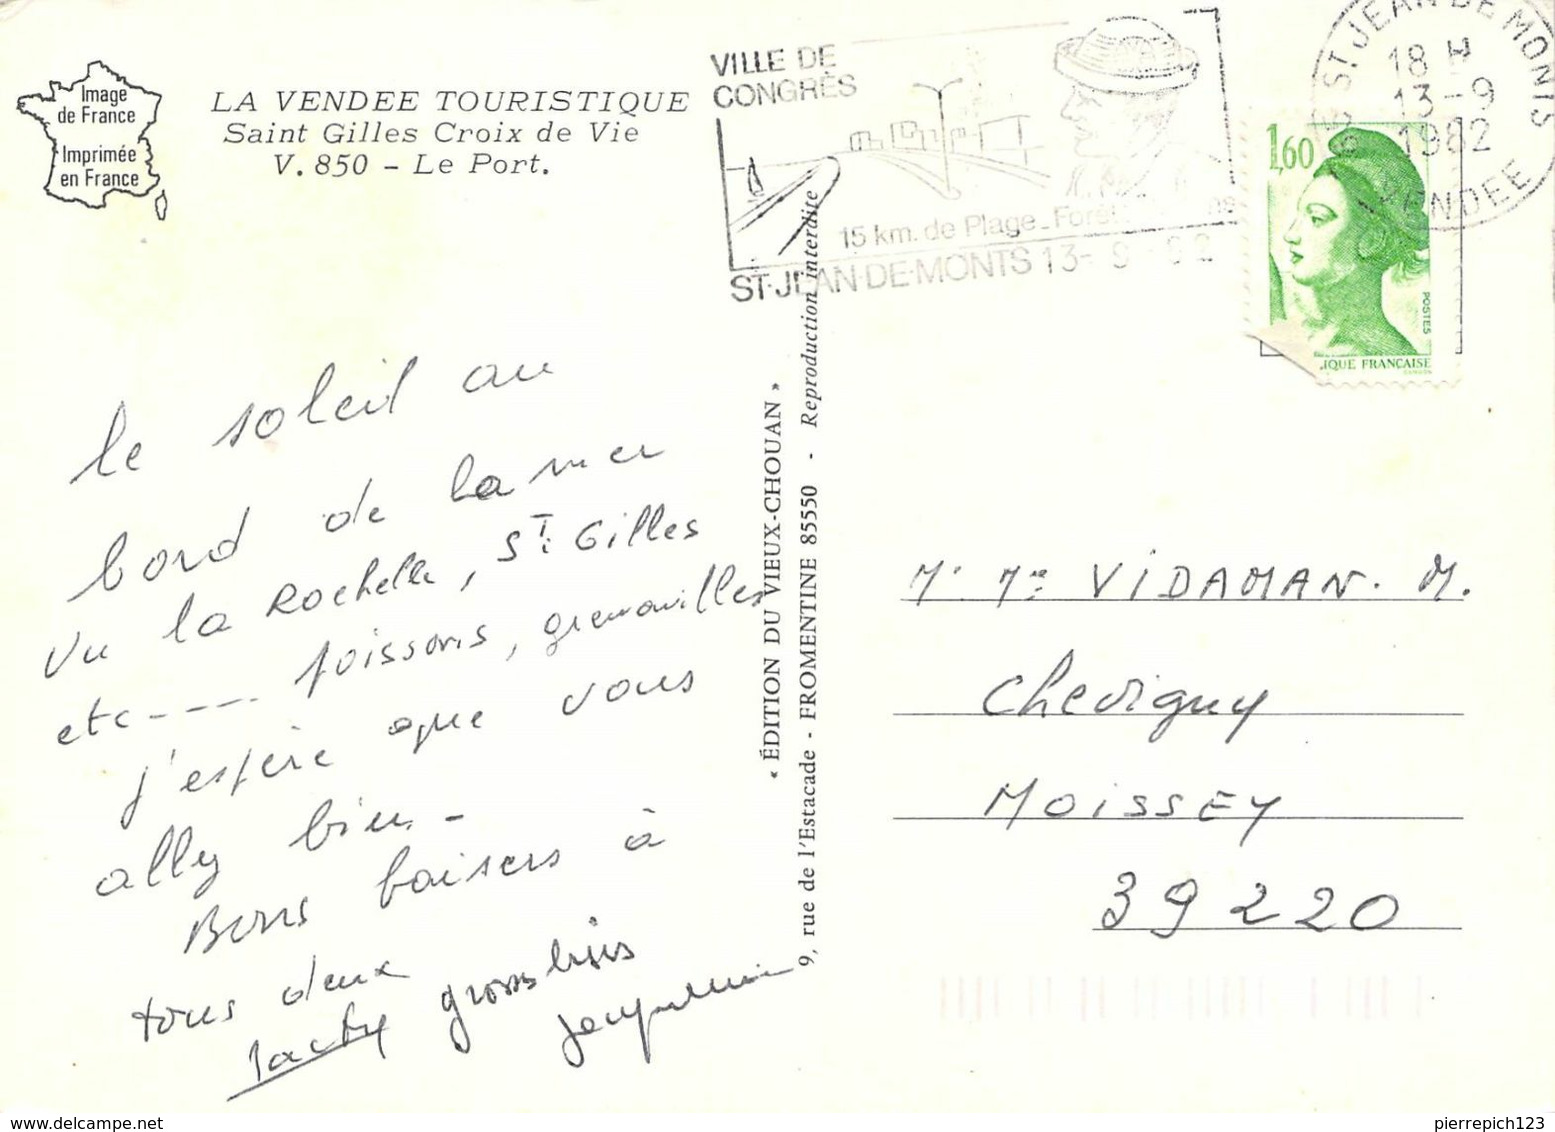 Image
de France
Imprimée
en France
LA VENDEE TOURISTIQUE
Saint Gilles Croix de Vie
V. 850 – Le Port.
VILLE DE
CONGRÈS
15 km. de Plage_Forêt
ST-JEAN-DE-MONTS 13-9-82
ST JEAN DE MONTS
18 H
13-9
1982
VENDEE
1,60
POSTES
IQUE FRANÇAISE
le soleil au
bord de la mer
vu la Rochelle, St Gilles
etc----. poissons, grenouilles
j'espère que vous
allez bien-
Bons baisers à
tous deux
Jacky gross bises
Jacqueline
« ÉDITION DU VIEUX-CHOUAN »
9, rue de l'Estacade - FROMENTINE 85550 - Reproduction interdite
Mr Me VIDAMAN. M.
Chevigny
MOISSEY
39220
delcampe.net
pierrepich123